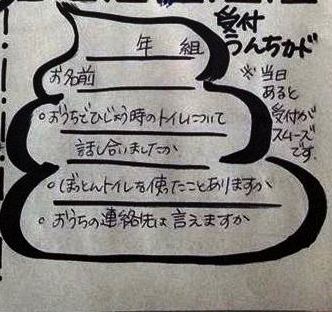 受付
うんちカード
※当日
あると
受付が
スムーズ
です。
年 組
お名前
○おうちでひじょう時のトイレについて
話し合いましたか
○ぼっとんトイレを使たことありますか
○おうちの連絡先は言えますか